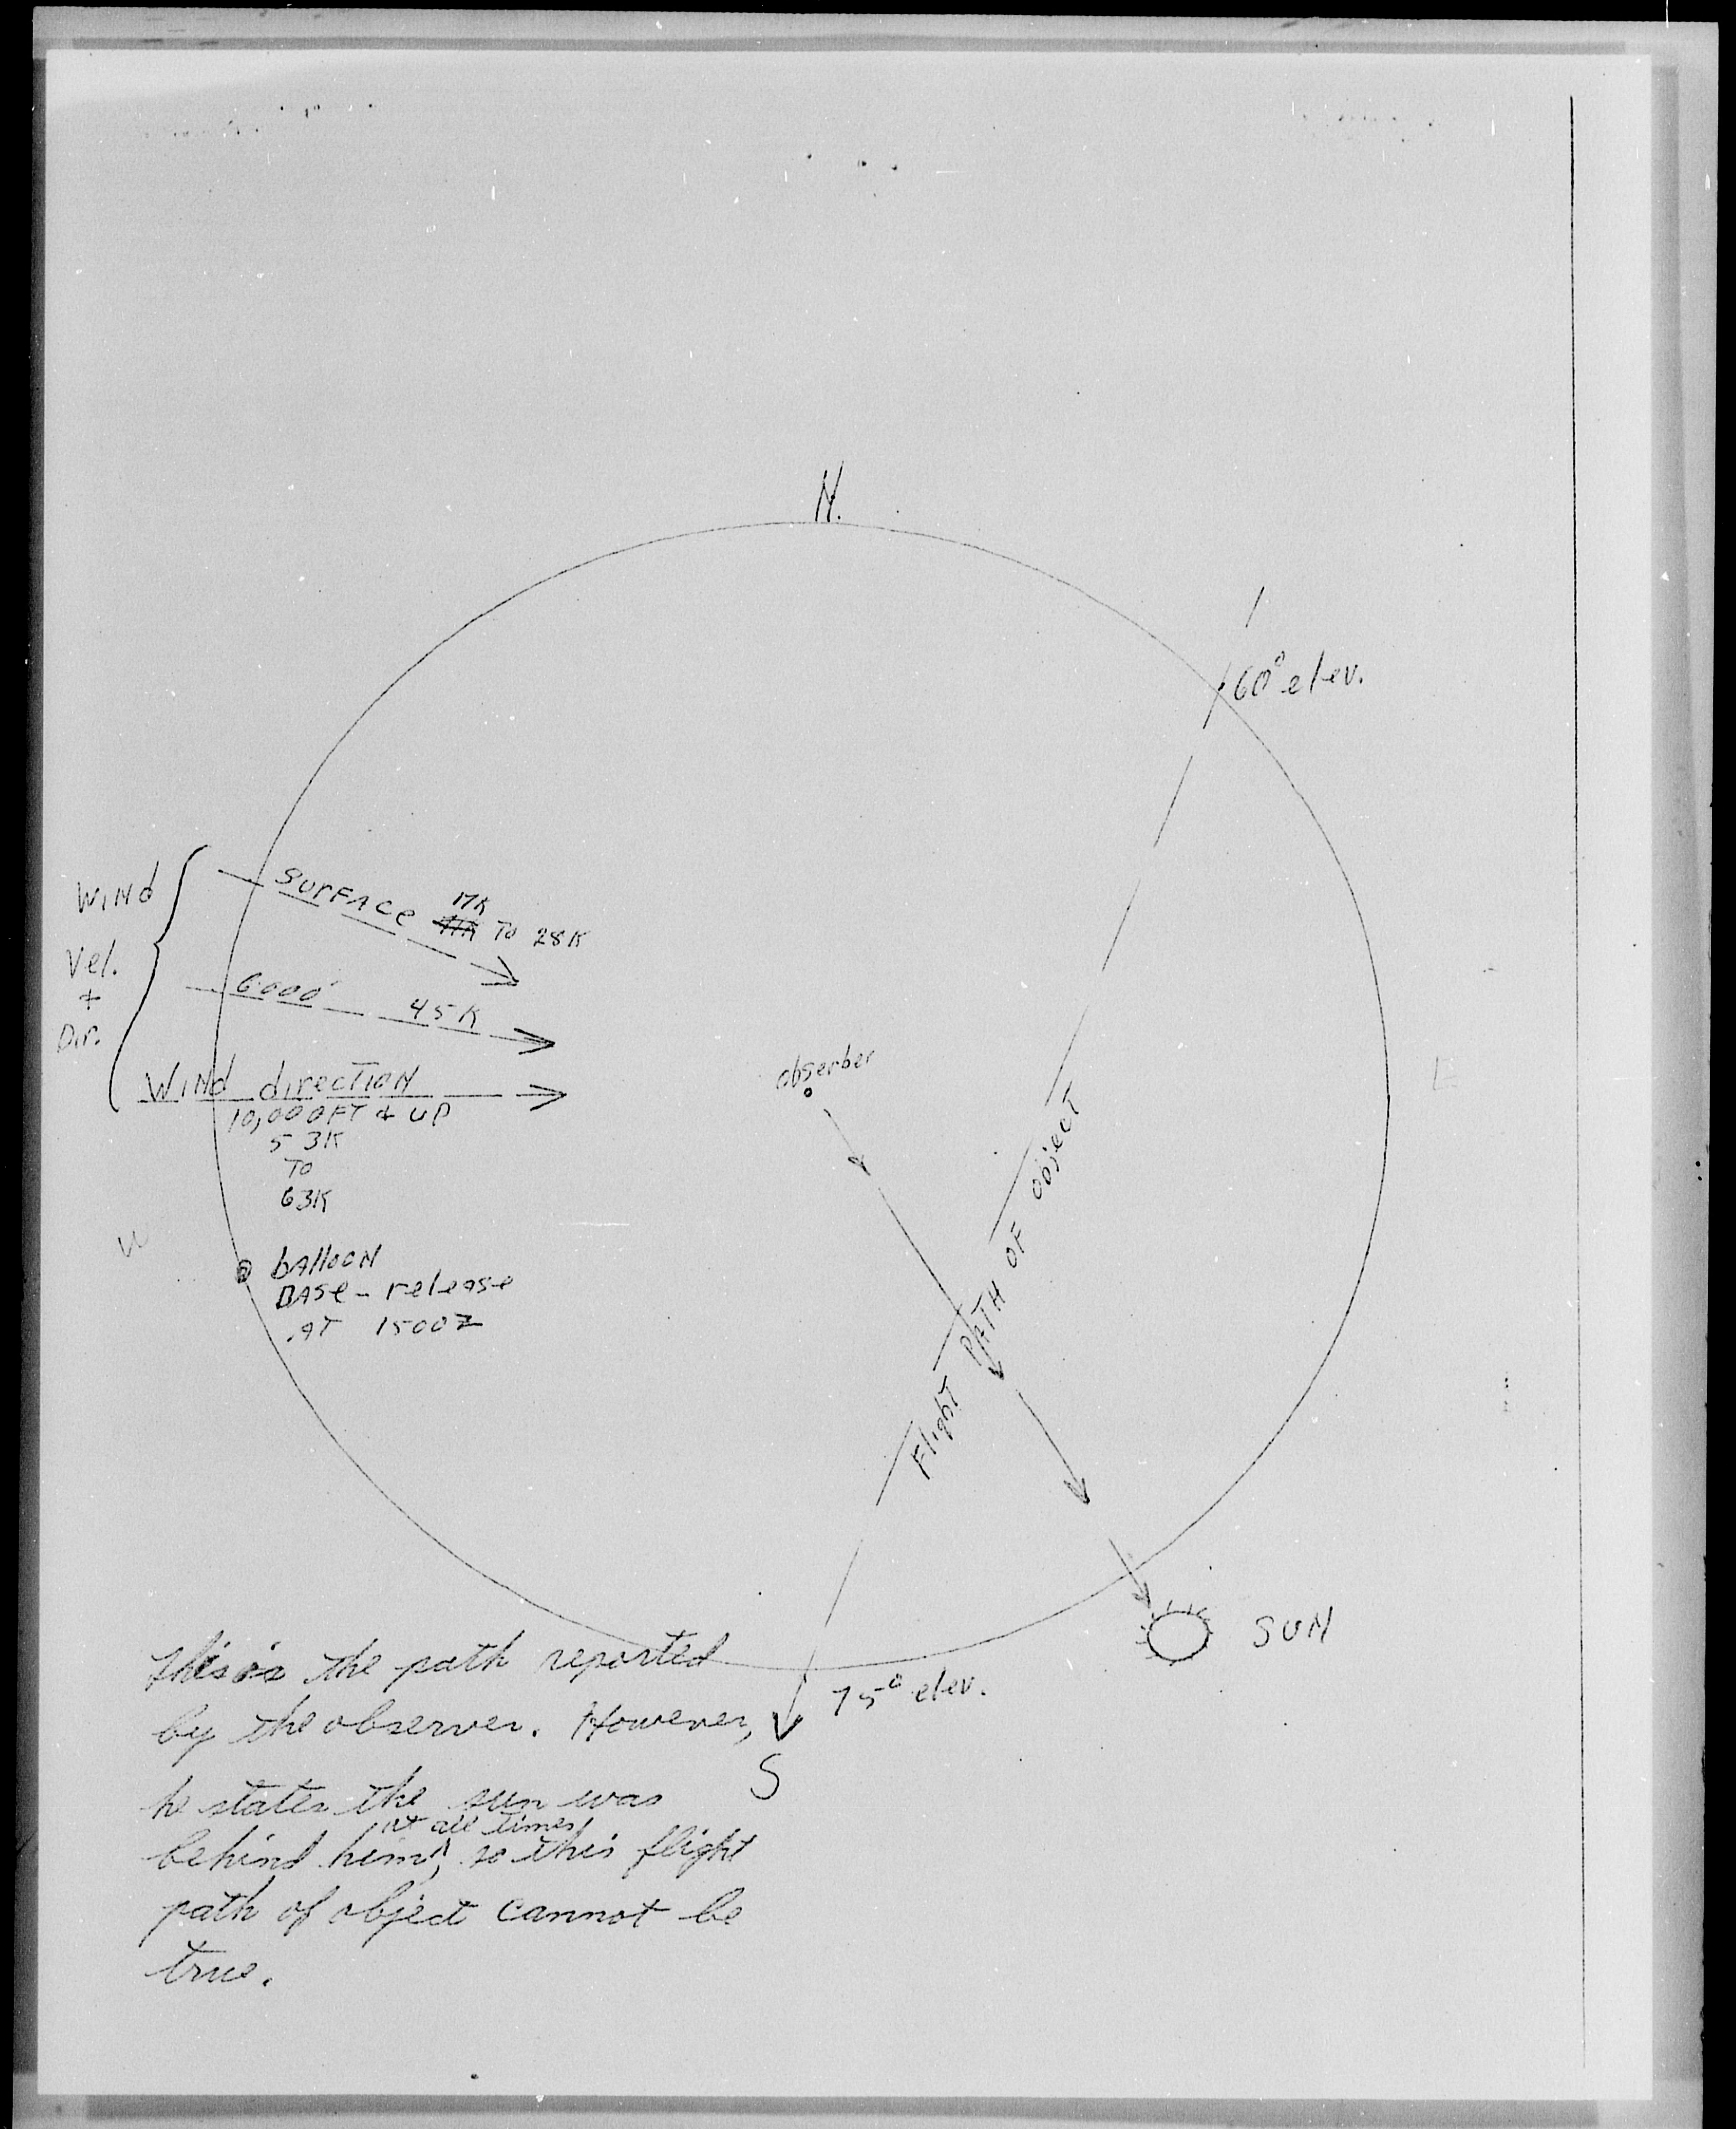 N.
60° elev.
WIND
Vel.
+
Dir.
SURFACE 17K TO 28K
6000' 45K
WIND direCTION
10,000FT + UP
53K
TO
63K
W
E
obserber
bAllooN
BASe - releASe
AT 1500Z
FlighT PATH OF objecT
SUN
75° elev.
S
this is the path reported
by the observer. However,
he states the sun was
at all times
behind him, so this flight
path of object cannot be
true.